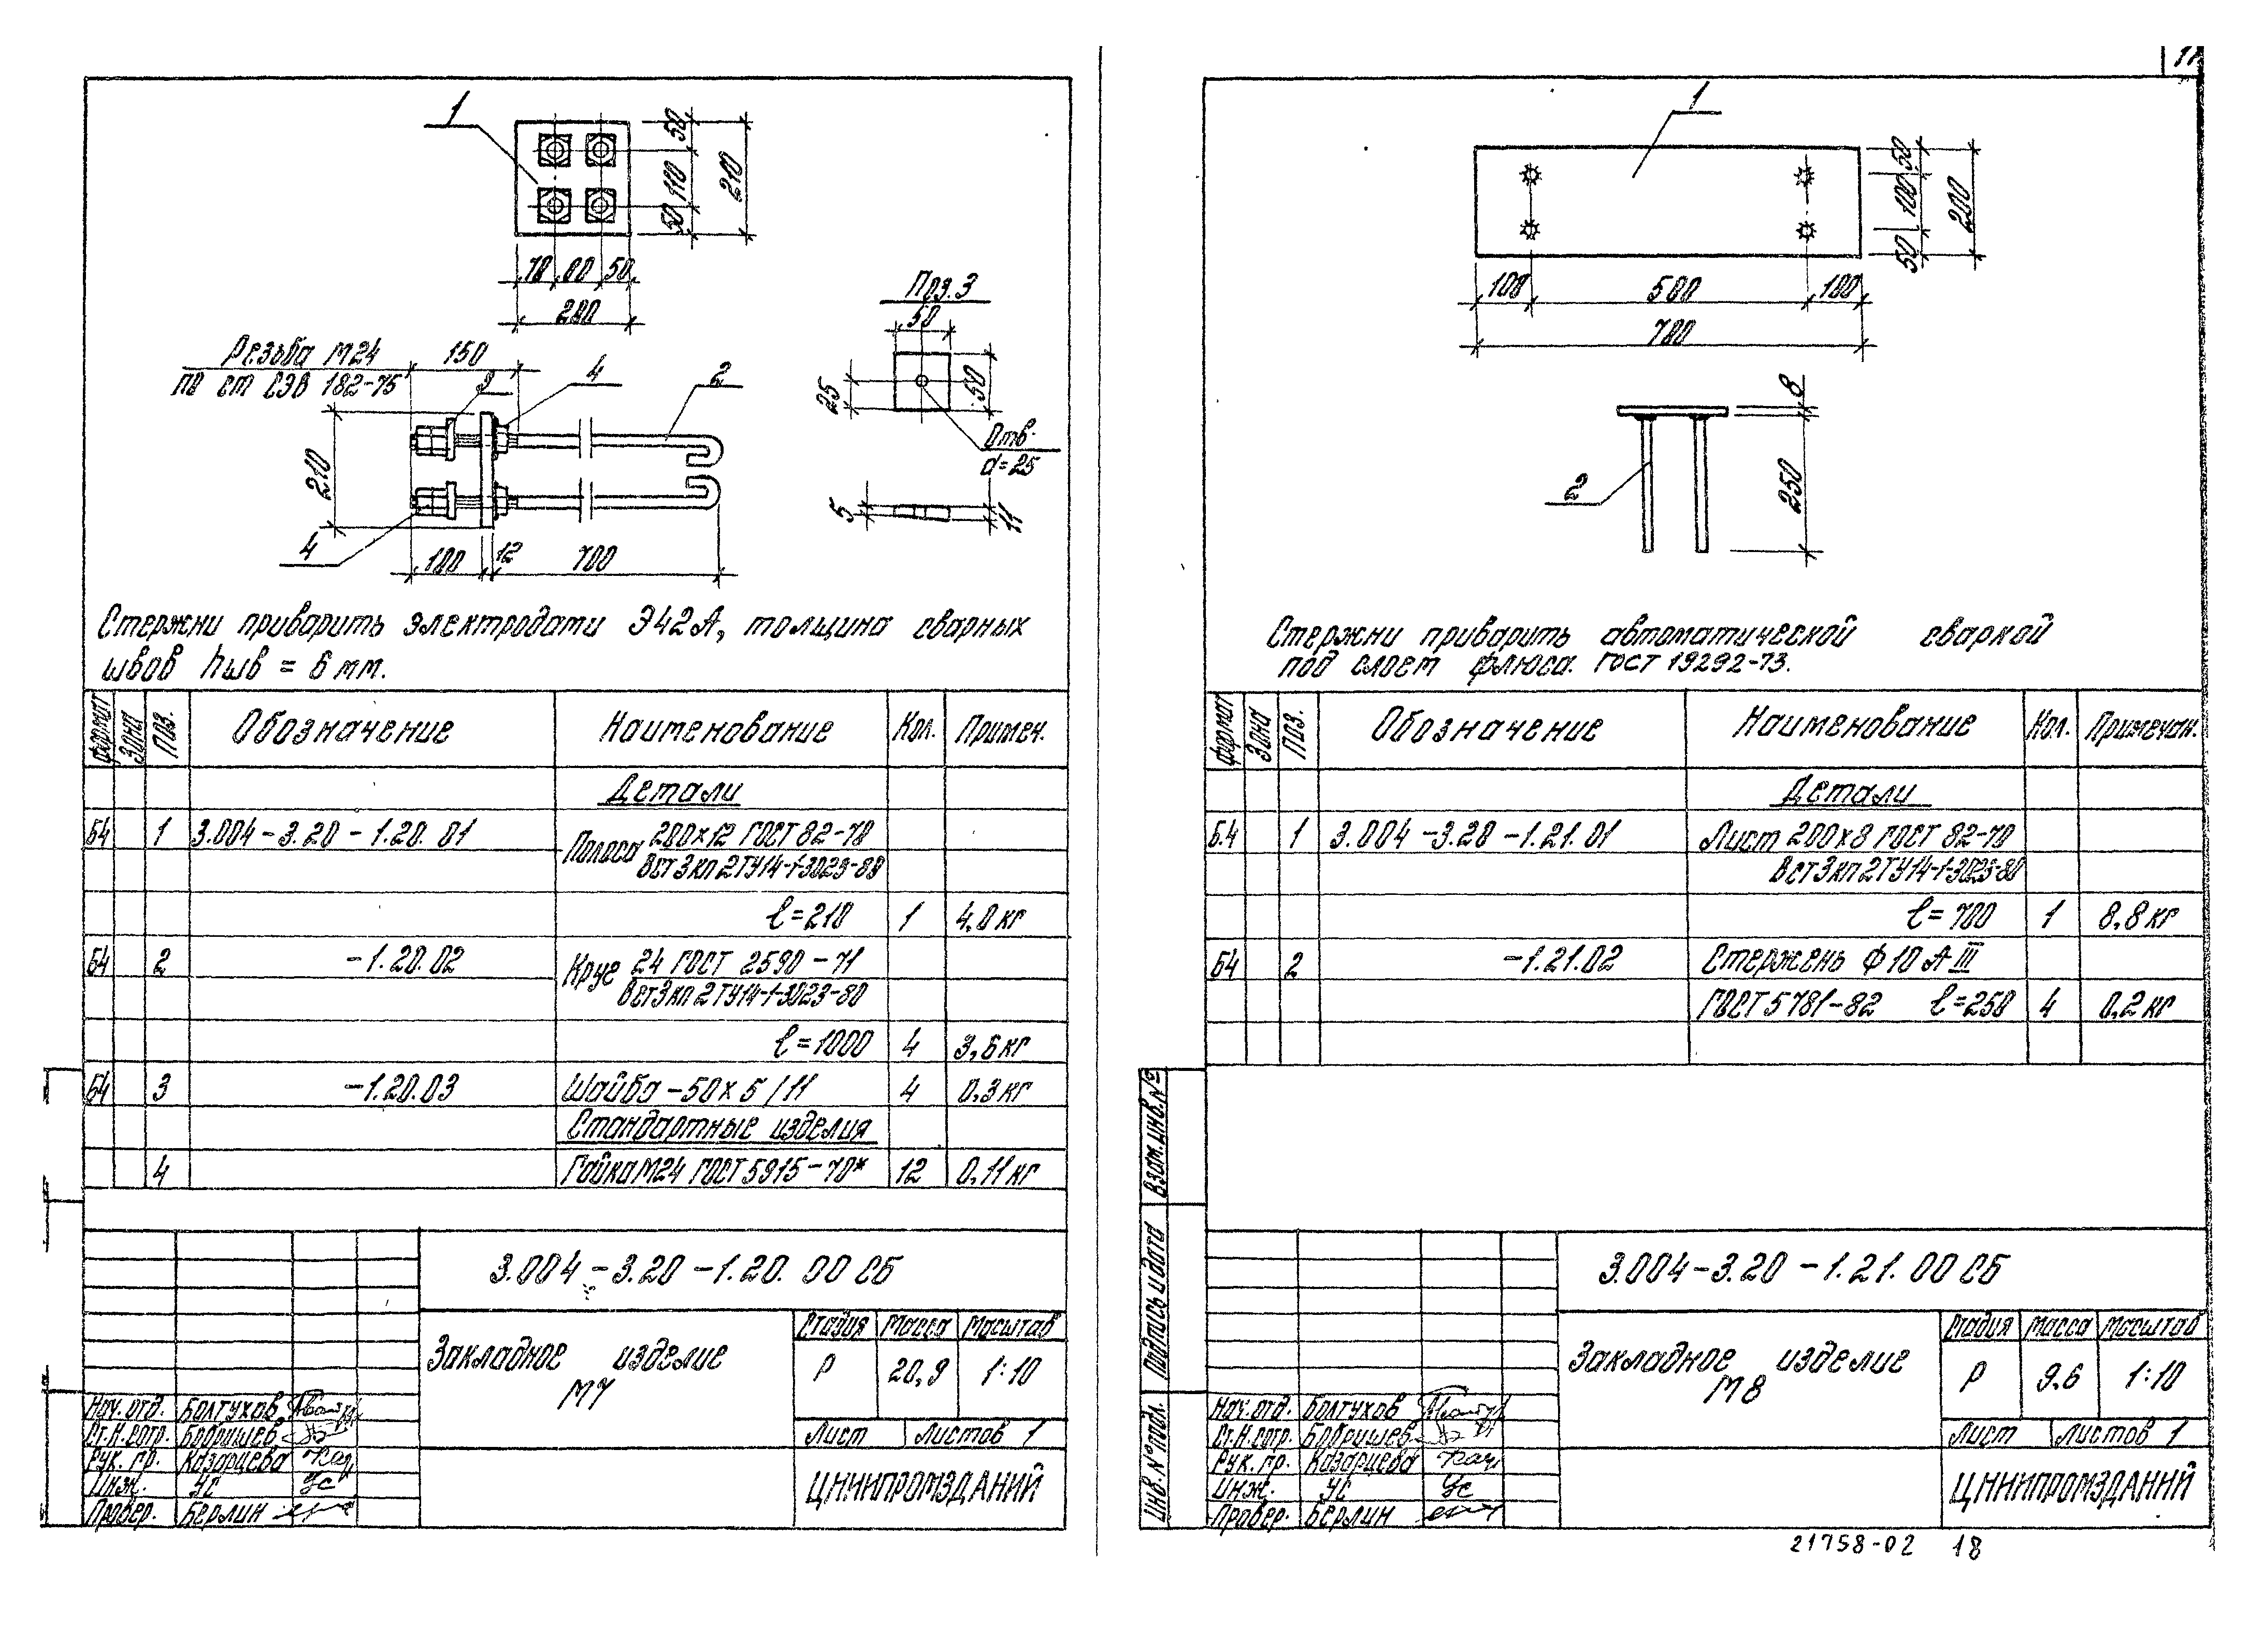 1
50
110
50
210
70 80 50
200
Поз. 3
50
50
25
Отв.
d=25
5
11
Резьба М24
по ст СЭВ 182-75
150
3
4
2
210
4
100
12
700
Стержни приварить электродами Э42А, толщина сварных
швов hшв = 6 мм.
Формат Зона Поз. Обозначение Наименование Кол. Примеч.
Детали
Б4 1 3.004-3.20-1.20.01 Полоса 200х12 ГОСТ 82-70
ВСт3кп2ТУ14-1-3023-80
ℓ=210 1 4,0кг
Б4 2 -1.20.02 Круг 24 ГОСТ 2590-71
ВСт3кп2ТУ14-1-3023-80
ℓ=1000 4 3,6кг
Б4 3 -1.20.03 Шайба -50х5/11 4 0,3кг
Стандартные изделия
4 Гайка М24 ГОСТ 5915-70* 12 0,11кг
3.004-3.20-1.20.00 СБ
Закладное изделие
М7
Стадия Масса Масштаб
Р 20,9 1:10
Лист Листов 1
ЦНИИПРОМЗДАНИЙ
Нач. отд. Болтухов
Ст.Н.сотр. Бобришев
Рук. гр. Казарцева
Инж. Ус
Провер. Берлин
1
50
100
50
200
100 500 100
700
8
250
2
Стержни приварить автоматической сваркой
под слоем флюса. ГОСТ 19292-73.
Формат Зона Поз. Обозначение Наименование Кол. Примечан.
Детали
Б4 1 3.004-3.20-1.21.01 Лист 200х8 ГОСТ 82-70
ВСт3кп2ТУ14-1-3023-80
ℓ=700 1 8,8кг
Б4 2 -1.21.02 Стержень Ф10АIII
ГОСТ 5781-82 ℓ=250 4 0,2кг
Взам.инв.№
Подпись и дата
Инв.№подл.
3.004-3.20-1.21.00 СБ
Закладное изделие
М8
Стадия Масса Масштаб
Р 9,6 1:10
Лист Листов 1
ЦНИИПРОМЗДАНИЙ
Нач. отд. Болтухов
Ст.Н.сотр. Бобришев
Рук. гр. Казарцева
Инж. Ус
Провер. Берлин
21758-02 18